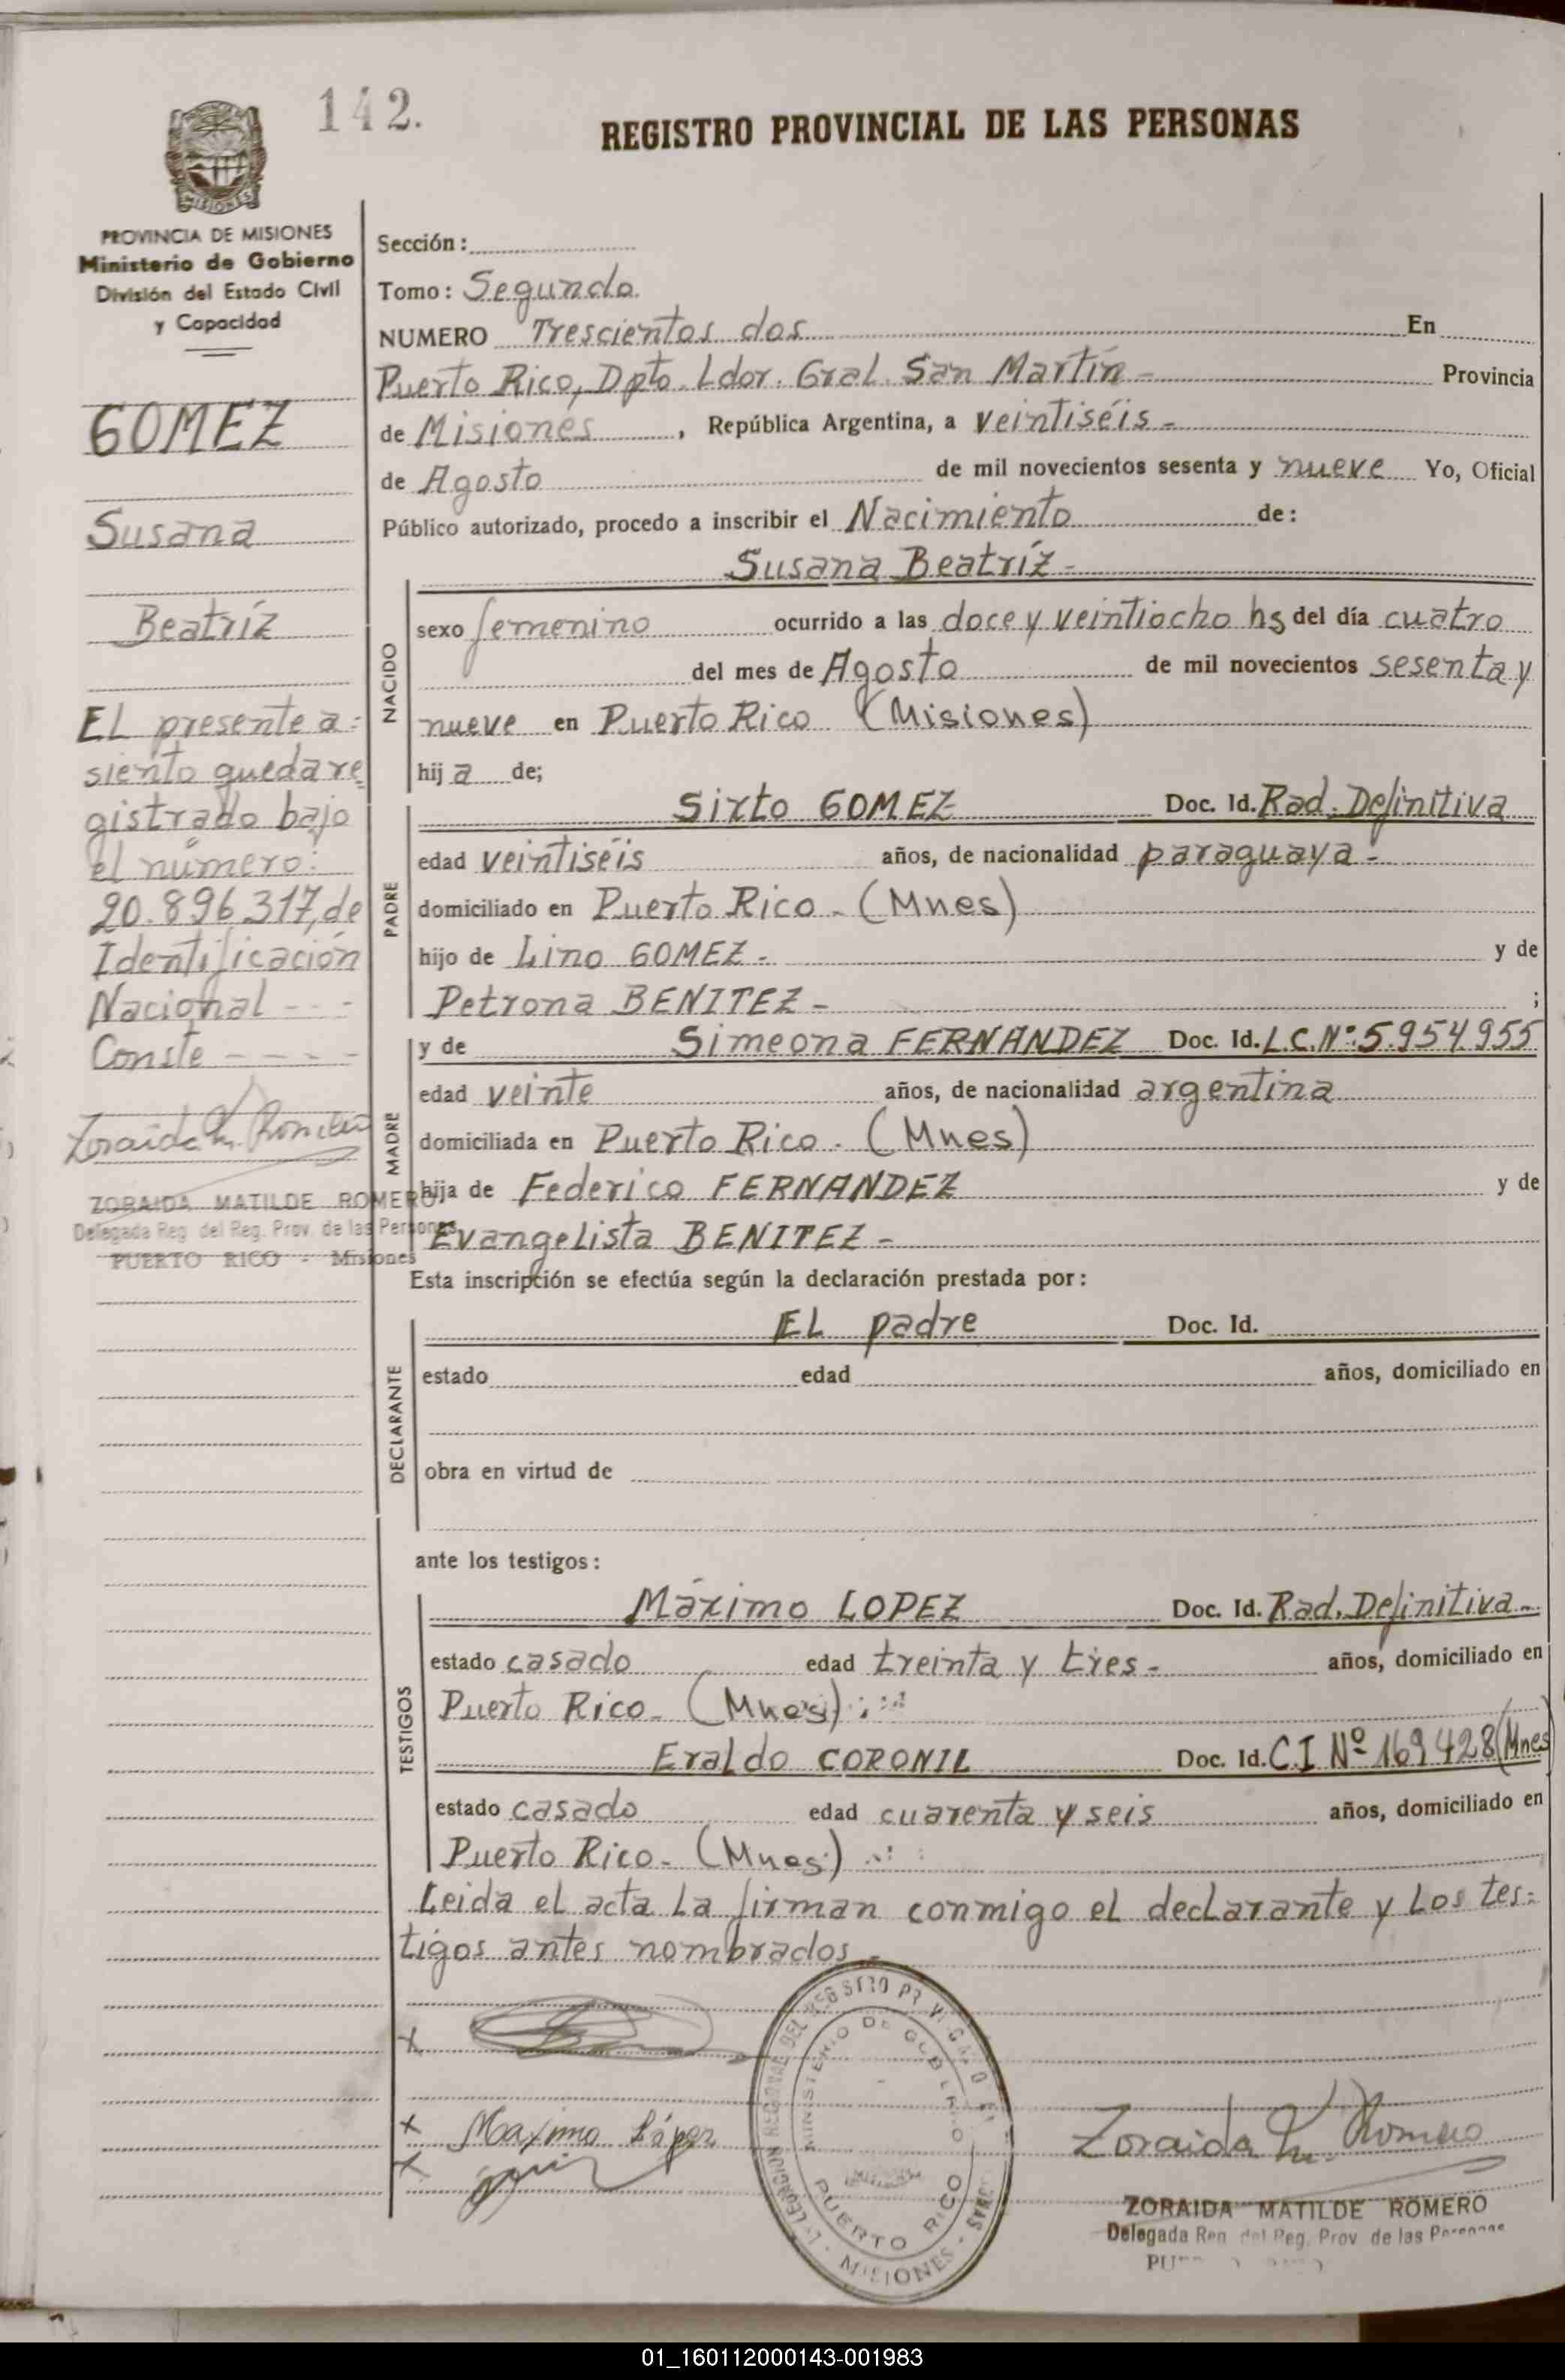 142.
REGISTRO PROVINCIAL DE LAS PERSONAS
MISIONES
PROVINCIA DE MISIONES
Ministerio de Gobierno
División del Estado Civil
y Capacidad
GOMEZ
Susana
Beatríz
EL presente a=
siento queda re
gistrado bajo
el número:
20.896.317, de
Identificación
Nacional - - -
Conste - - - -
Zoraida M. Romero
ZORAIDA MATILDE ROMERO
Delegada Reg. del Reg. Prov. de las Personas
PUERTO RICO - Misiones
Sección:
Tomo: Segundo.
NUMERO Trescientos dos En
Puerto Rico, Dpto. Ldor. Gral. San Martín - Provincia
de Misiones, República Argentina, a veintiséis -
de Agosto de mil novecientos sesenta y nueve Yo, Oficial
Público autorizado, procedo a inscribir el Nacimiento de:
Susana Beatríz -
NACIDO
sexo femenino ocurrido a las doce y veintiocho hs del día cuatro
del mes de Agosto de mil novecientos sesenta y
nueve en Puerto Rico (Misiones)
hija de;
PADRE
Sixto GOMEZ Doc. Id. Rad. Definitiva
edad veintiséis años, de nacionalidad paraguaya -
domiciliado en Puerto Rico - (Mnes)
hijo de Lino GOMEZ - y de
Petrona BENITEZ - ;
MADRE
y de Simeona FERNANDEZ Doc. Id. L.C.Nº:5.954.955
edad veinte años, de nacionalidad argentina
domiciliada en Puerto Rico - (Mnes)
hija de Federico FERNANDEZ y de
Evangelista BENITEZ -
Esta inscripción se efectúa según la declaración prestada por:
DECLARANTE
EL padre Doc. Id.
estado edad años, domiciliado en
obra en virtud de
ante los testigos:
TESTIGOS
Máximo LOPEZ Doc. Id. Rad. Definitiva -
estado casado edad treinta y tres - años, domiciliado en
Puerto Rico - (Mnes)
Eraldo CORONIL Doc. Id. C.I Nº 169428 (Mnes)
estado casado edad cuarenta y seis años, domiciliado en
Puerto Rico - (Mnes)
Leida el acta la firman conmigo el declarante y los tes=
tigos antes nombrados -
x
x Maximo López
x
DELEGACION REGIONAL DEL REGISTRO PROVINCIAL DE LAS PERSONAS - MISIONES
MINISTERIO DE GOBIERNO
PUERTO RICO
Zoraida M. Romero
ZORAIDA MATILDE ROMERO
Delegada Reg. del Reg. Prov. de las Personas
01_160112000143-001983